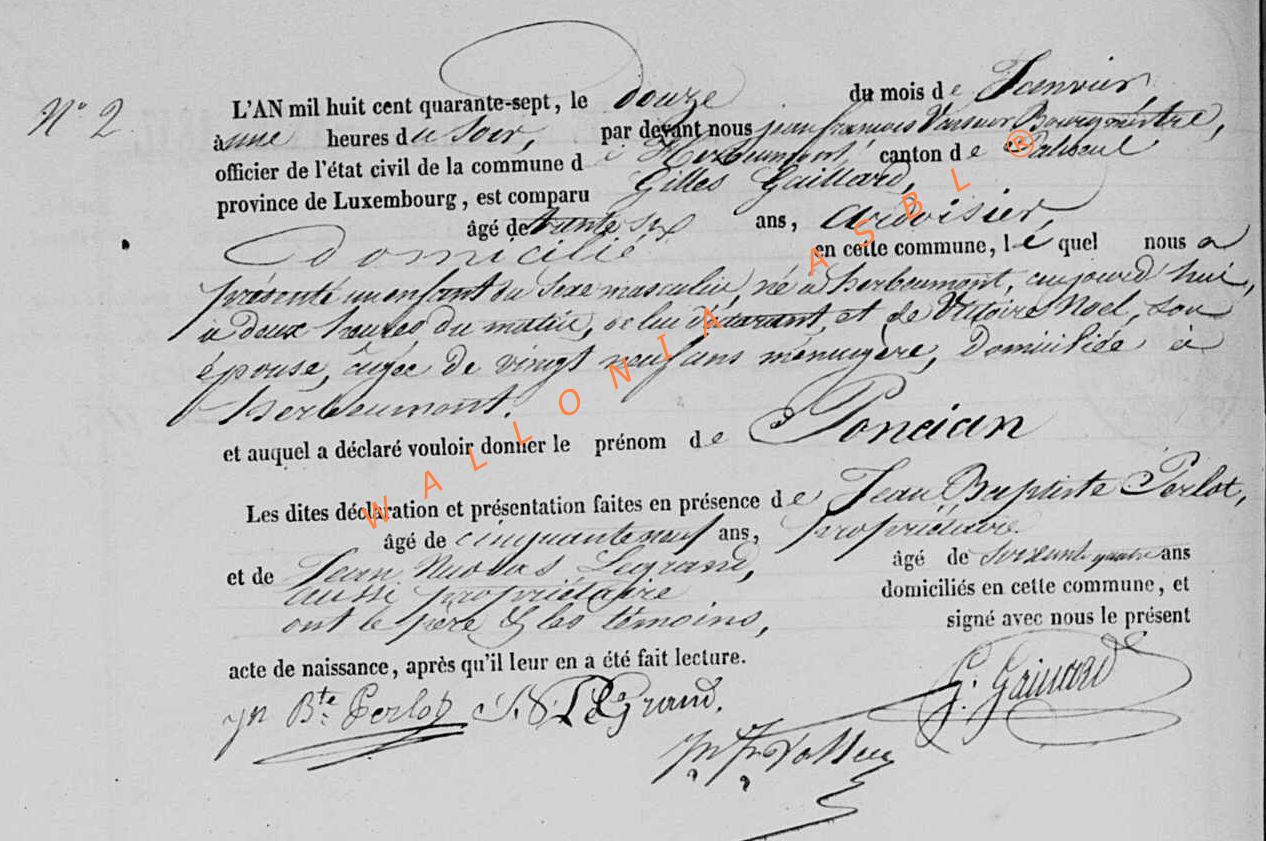 N° 2
L'AN mil huit cent quarante-sept, le douze du mois de Janvier,
à une heures du Soir, par devant nous jean françois Bourgmestre,
officier de l'état civil de la commune de Herbeumont, canton de Paliseul
province de Luxembourg, est comparu Gilles Gaillard,
âgé de trente six ans, ardoisier,
Domicilié en cette commune, lequel nous a
présenté un enfant du Sexe masculin, né à herbeumont, aujourd'hui,
à deux heures du matin, de lui déclarant, et de Victoire Noël, son
épouse, âgée de vingt neuf ans ménagère, Domiciliée à
herbeumont.
et auquel a déclaré vouloir donner le prénom de Poncian
Les dites déclaration et présentation faites en présence de Jean Baptiste Perlot,
âgé de cinquante neuf ans, propriétaire
et de Jean Nicolas Legrand, âgé de soixante quatre ans
aussi propriétaire domiciliés en cette commune, et
ont le père & les témoins, signé avec nous le présent
acte de naissance, après qu'il leur en a été fait lecture.
G. Gaillard
Jn Bte Perlot J. N. LeGrand.
WALLONIA ASBL ®